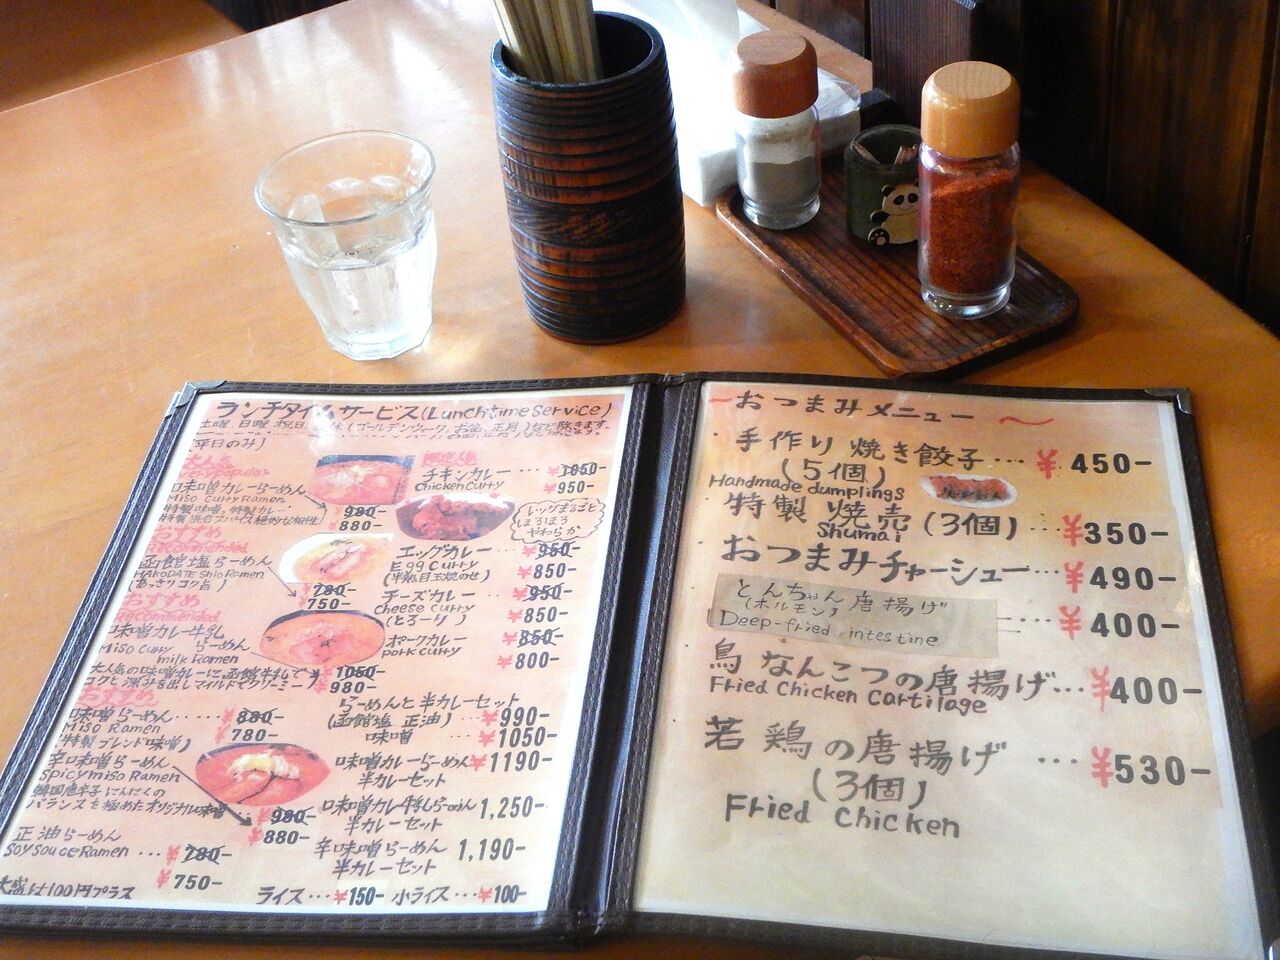 ランチタイムサービス(Lunchtime Service)
土曜、日曜 祝日
(ゴールデンウィーク、お盆、正月)など除きます。
(平日のみ)
味噌カレーらーめん
Miso Curry Ramen
特製味噌、特製カレー
¥980-
880-
おすすめ
Recommended
函館塩らーめん
HAKODATE Shio Ramen
(あっさりコク旨)
¥780-
750-
おすすめ
Recommended
味噌カレー牛乳
らーめん
Miso Curry
milk Ramen
大人気の味噌カレーに函館牛乳で
コクと深みを出しマイルドでクリーミー
¥1050-
980-
おすすめ
味噌らーめん……¥880-
Miso Ramen
¥780-
(特製ブレンド味噌)
辛味噌らーめん
Spicy miso Ramen
韓国唐辛子にんにくの
バランスを極めたオリジナル味噌
¥980-
¥880-
正油らーめん
Soy souce Ramen …¥780-
¥750-
大盛は100円プラス
チキンカレー…¥1050-
Chicken curry
¥950-
レッグまるごと
ほろほろ
やわらか
エッグカレー…¥950-
Egg curry
(半熟目玉焼のせ)
¥850-
チーズカレー…¥950-
Cheese curry
(とろーり)
¥850-
ポークカレー
¥850-
pork curry
¥800-
らーめんと半カレーセット
(函館塩 正油)…¥990-
味噌 …¥1050-
味噌カレーらーめん ¥1190-
半カレーセット
味噌カレー牛乳らーめん 1,250-
半カレーセット
辛味噌らーめん 1,190-
半カレーセット
ライス…¥150- 小ライス…¥100-
〜おつまみメニュー〜
・手作り焼き餃子…¥450-
(5個)
Handmade dumplings
・特製焼売(3個)…¥350-
Shumai
・おつまみチャーシュー…¥490-
とんちゃん唐揚げ
(ホルモン)
…¥400-
Deep-fried intestine
・鳥なんこつの唐揚げ…¥400-
Fried Chicken Cartilage
・若鶏の唐揚げ…¥530-
(3個)
Fried Chicken